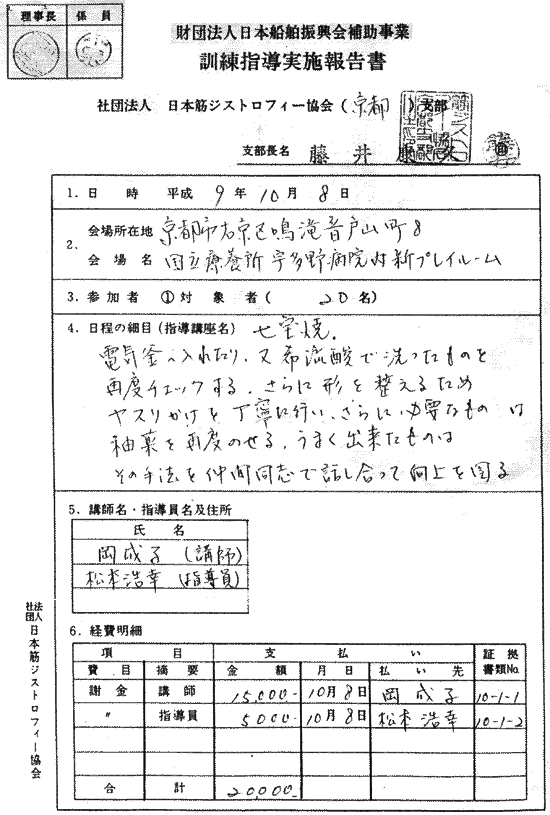 理事長 係員
財団法人日本船舶振興会補助事業
訓練指導実施報告書
社団法人 日本筋ジストロフィー協会(京都)支部
支部長名 藤井
1. 日 時 平成 9年 10月 8日
2. 会場所在地 京都市右京区鳴滝音戸山町8
会場名 国立療養所宇多野病院内新プレイルーム
3. 参加者 ①対象者( 20名)
4. 日程の細目(指導講座名) 七宝焼.
電気釜へ入れたり、又希硫酸で洗ったものを
再度チェックする、さらに形を整えるため
ヤスリがけを丁寧に行い、さらに必要なものは
釉薬を再度のせる、うまく出来たものは
その手法を仲間同志で話し合って向上を図る
5. 講師名・指導員名及住所
氏名
岡成子(講師)
松本浩幸(指導員)
6. 経費明細
項目 支払い 証拠書類No.
費目 摘要 金額 月日 払い先
謝金 講師 15,000- 10月8日 岡成子 10-1-1
〃 指導員 5000- 10月8日 松本浩幸 10-1-2
合計 20,000-
社団法人 日本筋ジストロフィー協会